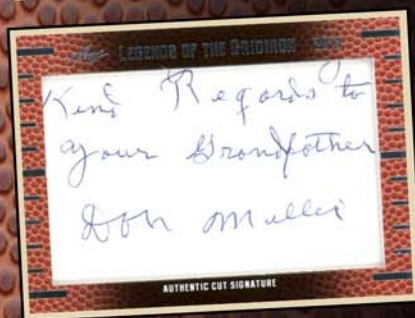 Leaf LEGENDS OF THE GRIDIRON
Kind Regards to
your Grandfather
Don Miller
AUTHENTIC CUT SIGNATURE